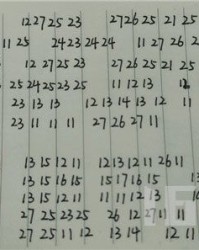 12 27 25 23 27 26 25 21 25
11 25 24 23 24 24 11 27 26 2
12 27 25 23 27 26 25 21 25
25 24 25 23 25 11 12 13 12
23 13 13 12 13 14 13 12 11
23 11 11 11 27 26 27 11
13 15 12 11 12 13 12 11 26 11
13 15 16 15 15 17 16 15 13
13 15 12 11 11 11 12 13 16
27 25 23 25 26 12 27 11 11
27 25 11 12 13 14 12 11